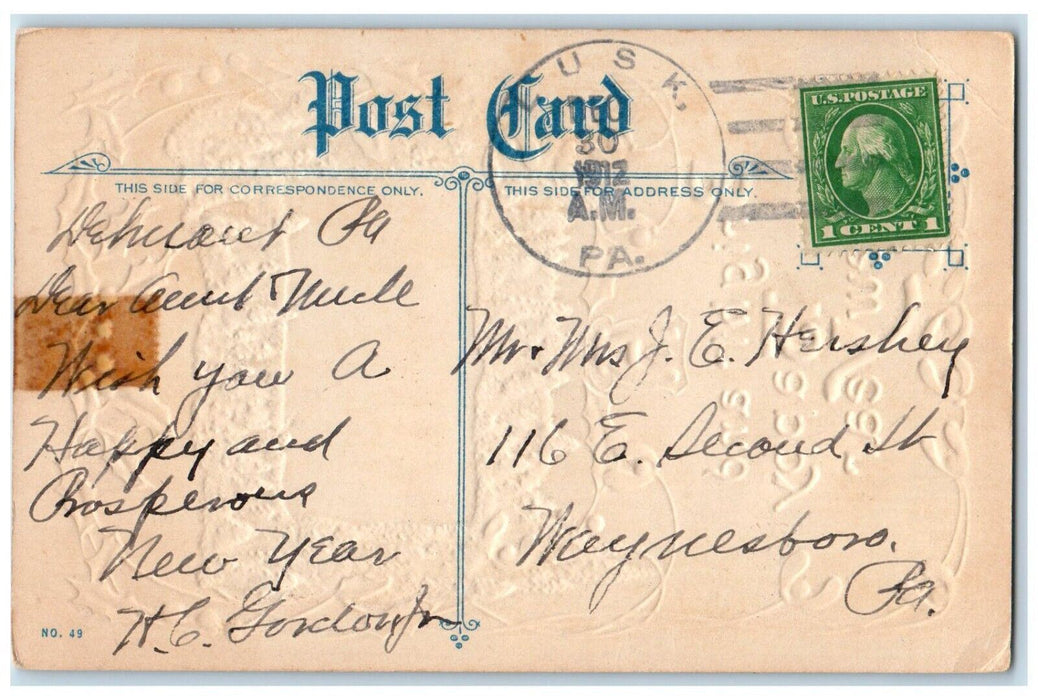 Post Card
THIS SIDE FOR CORRESPONDENCE ONLY.
THIS SIDE FOR ADDRESS ONLY.
LUSK,
DEC
30
1912
A.M.
PA.
U.S. POSTAGE
1 CENT 1
Pa
Dear Aunt Uncle
Wish you A
Happy and
Prosperous
New Year
H.C. Gordon Jr
Mr. Mrs J. E. Hershey
116 E. Second St
Waynesboro.
Pa.
NO. 49